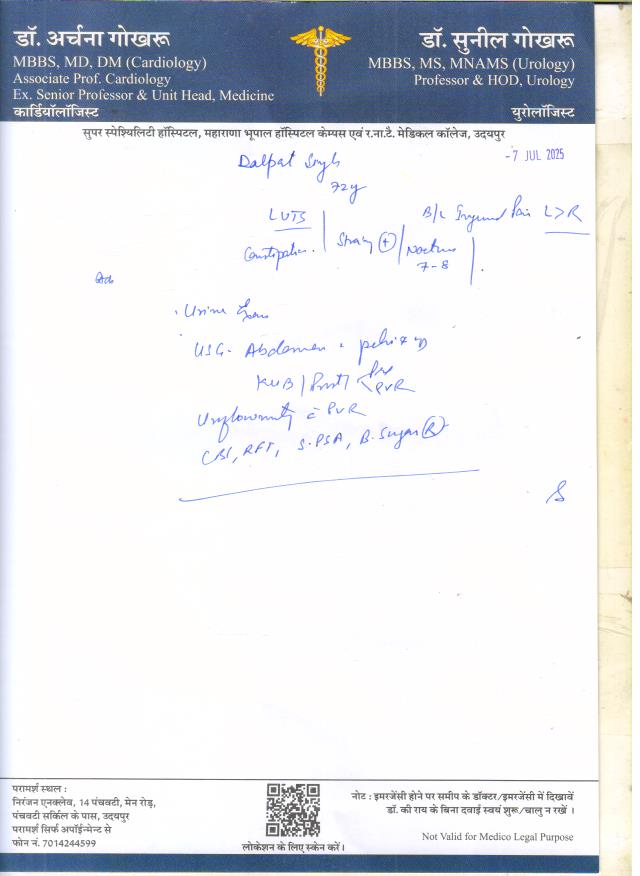 डॉ. अर्चना गोखरू
MBBS, MD, DM (Cardiology)
Associate Prof. Cardiology
Ex. Senior Professor & Unit Head, Medicine
कार्डियॉलॉजिस्ट
डॉ. सुनील गोखरू
MBBS, MS, MNAMS (Urology)
Professor & HOD, Urology
युरोलॉजिस्ट
सुपर स्पेश्यिलिटी हॉस्पिटल, महाराणा भूपाल हॉस्पिटल केम्पस एवं र.ना.टै. मेडिकल कॉलेज, उदयपुर
-7 JUL 2025
Dalpat Singh
72y
LUTS
B/L Inguinal Pain L>R
Constipation.
7-8
Urine
USG. Abdomen
KUB
PVR
PVR
CBC, RFT, S.PSA, B.Sugar (R)
परामर्श स्थल :
निरंजन एनक्लेव, 14 पंचवटी, मेन रोड़,
पंचवटी सर्किल के पास, उदयपुर
परामर्श सिर्फ अपॉईन्मेन्ट से
फोन नं. 7014244599
लोकेशन के लिए स्केन करें।
नोट : इमरजेंसी होने पर समीप के डॉक्टर/इमरजेंसी में दिखावें
डॉ. की राय के बिना दवाई स्वयं शुरू/चालु न रखें ।
Not Valid for Medico Legal Purpose